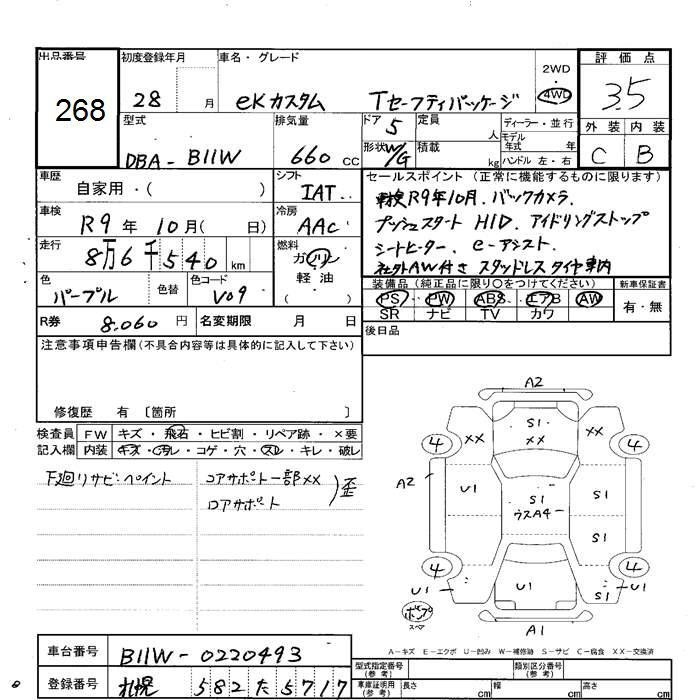 出品番号 初度登録年月 車名・グレード 2WD 4WD 評価点
268 28 月 eKカスタム Tセーフティパッケージ 3.5
型式 排気量 ドア 5 定員 人 ディーラー・並行 外装 内装
DBA-B11W 660 cc 形状 W/G 積載 kg モデル年式 年 ハンドル 左・右 C B
車歴 自家用・( ) シフト IAT セールスポイント (正常に機能するものに限ります)
車検 R9年10月(日) 冷房 AAC 車検R9年10月.バックカメラ.
プッシュスタート HID.アイドリングストップ
走行 8万6千540km 燃料 ガソリン・軽油 シートヒーター.e-アシスト.
社外AW付き スタッドレスタイヤ車内
色 パープル 色替 色コード V09 装備品 (純正品に限り○をつけてください) 新車保証書
PS PW ABS エアB AW 有・無
SR ナビ TV カワ
R券 8,060円 名変期限 月 日 後日品
注意事項申告欄(不具合内容等は具体的に記入して下さい)
修復歴 有 〔箇所 〕
検査員 FW キズ・飛石・ヒビ割・リペア跡・×要
記入欄 内装 キズ・汚レ・コゲ・穴・スレ・キレ・破レ
下廻リサビ・ペイント コアサポート一部XX
ロアサポート 歪
A2
S1
XX XX XX
4 4
A2 U1 S1 S1
ウスA4
S1
4 4
U1 U1 S1 U1
ポンプ
スペア
A1
A-キズ E-エクボ U-凹み W-補修跡 S-サビ C-腐食 XX-交換済
車台番号 B11W-0220493
型式指定番号(参考) 類別区分番号(参考)
登録番号 札幌 582 た 5717
車庫証明用(参考) 長さ cm 幅 cm 高さ cm